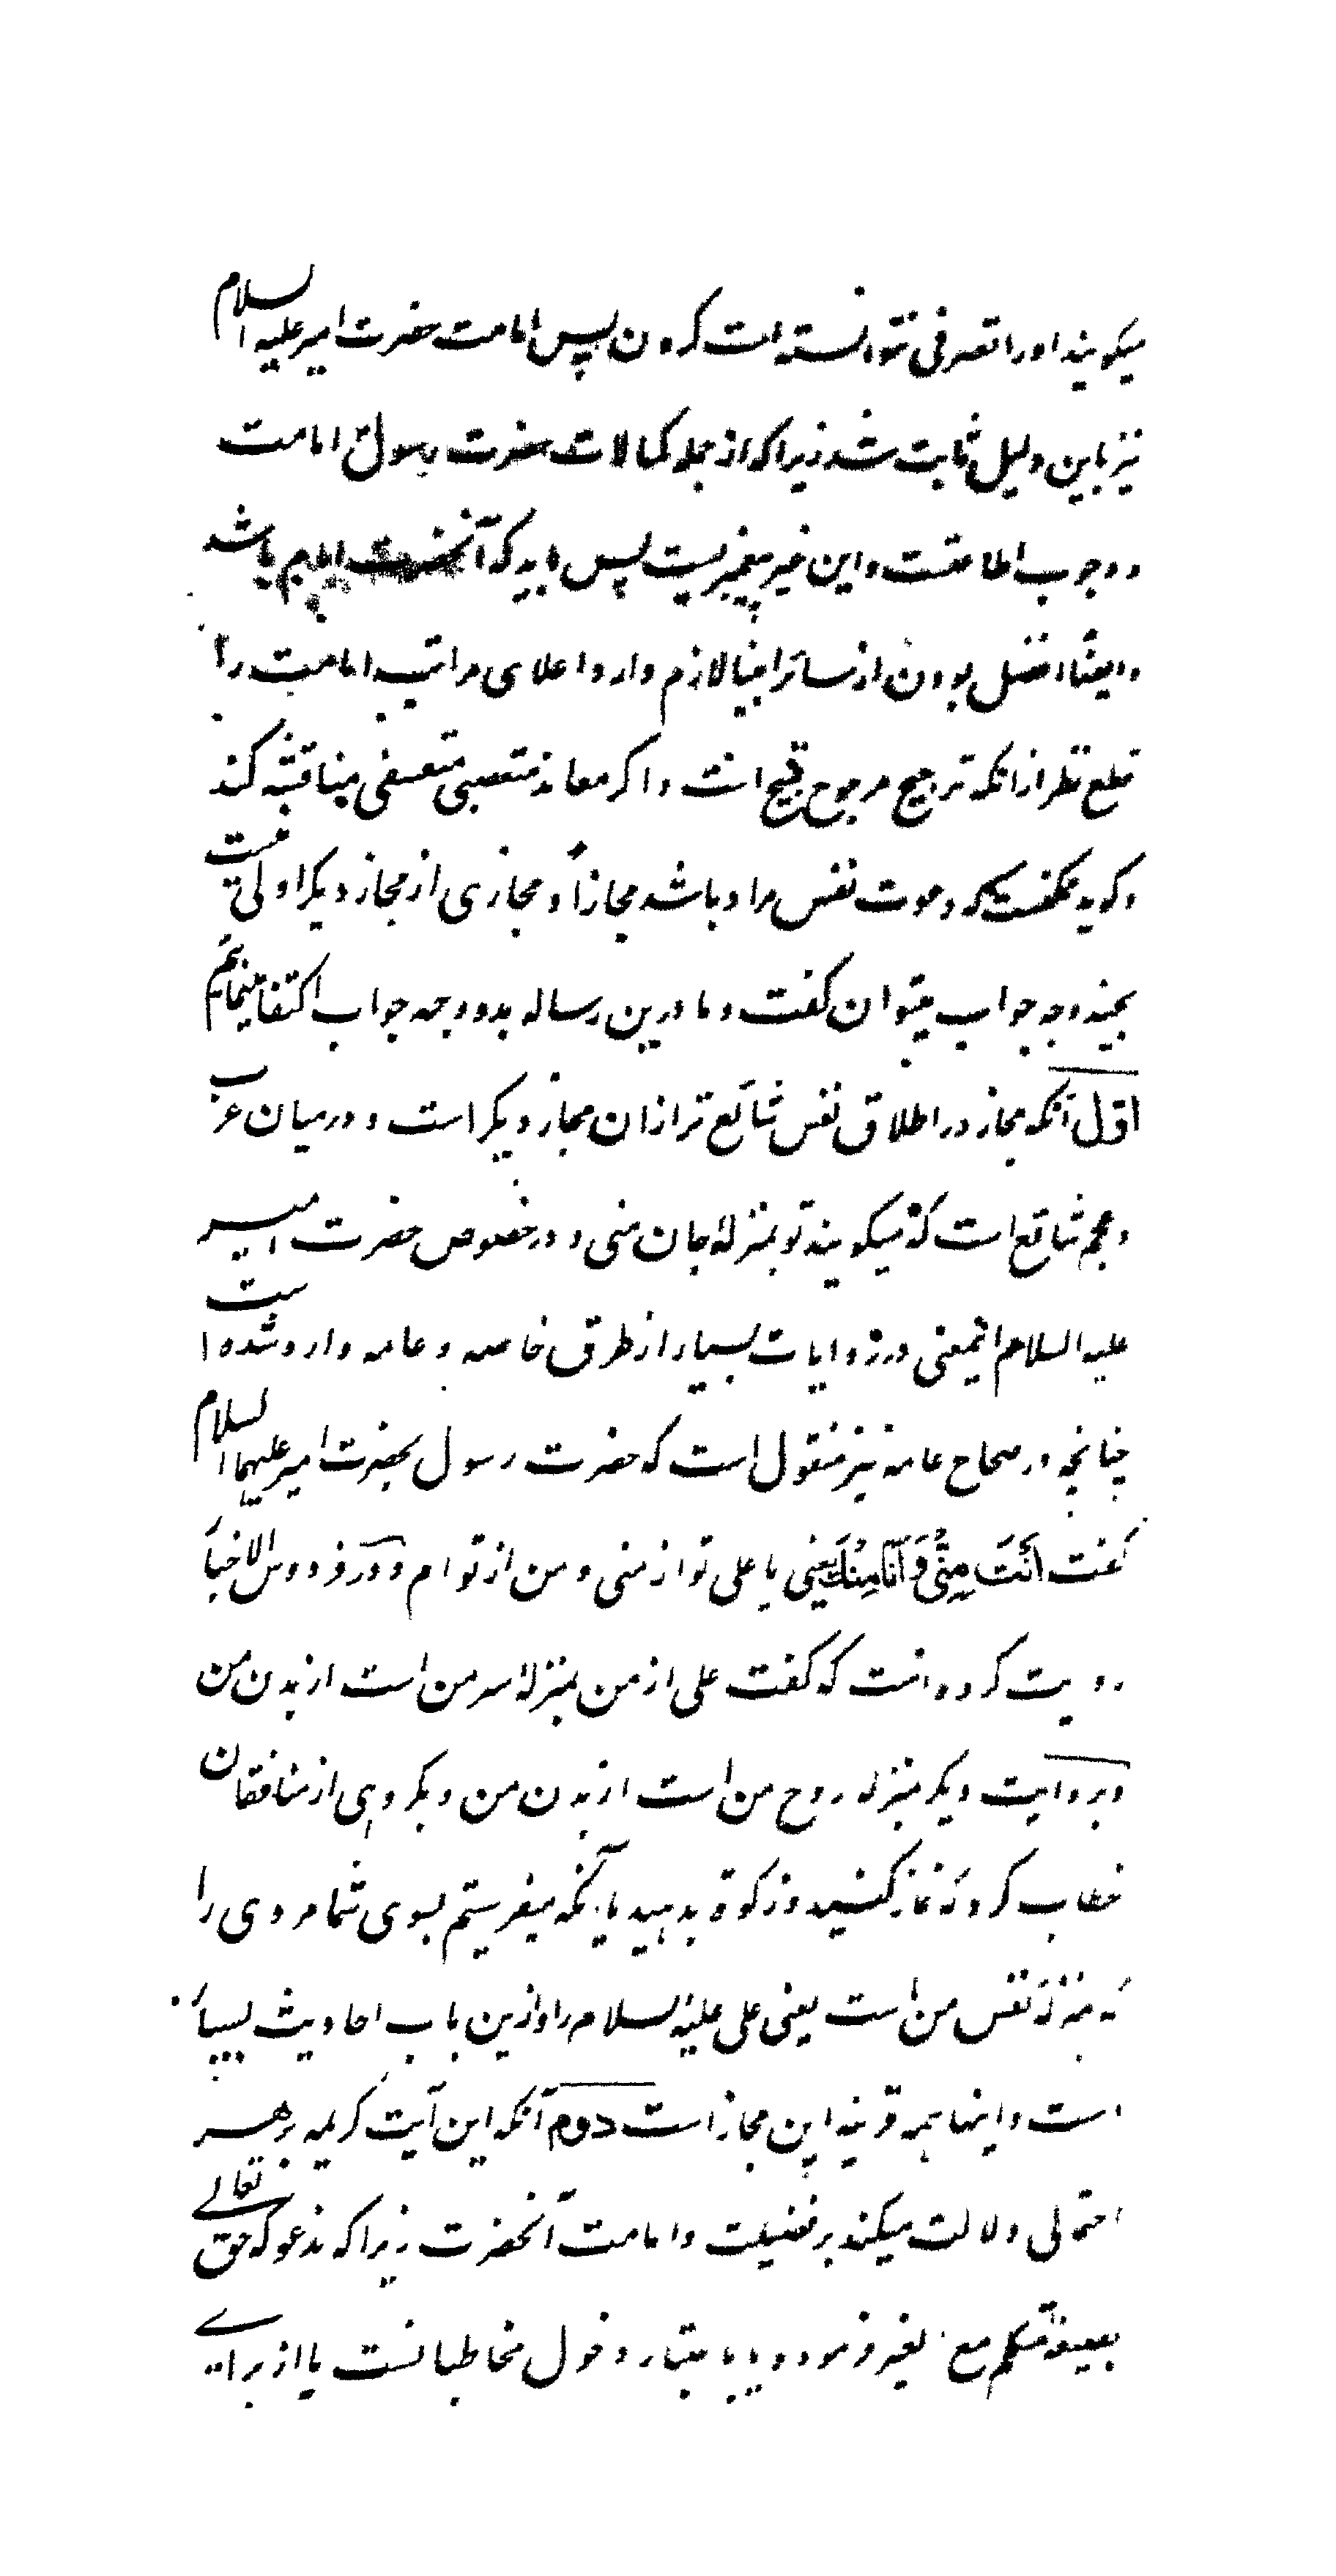 میکویند او را تصرفی نتوانسته است کردن پس امامت حضرت امیر علیه السلام
نیز باین دلیل ثابت شد زیرا که از جمله کمالات حضرت رسول امامت
و وجوب اطاعتست و این غیر پیغمبریست پس باید که آنحضرت امام باشد
و ایضاً افضل بودن از سائر انبیا لازم دارد اعلای مراتب امامت را
قطع نظر از انکه ترجیح مرجوح قبیح است و اکر معاند متعصبی متعسفی مناقشه کند
و کوید ممکنست که دعوت نفس مراد باشد مجازاً و مجازی از مجاز دیکر اولی نیست
بچند وجه جواب میتوان کفت و ما درین رساله بدو وجه جواب اکتفا مینمایم
اول آنکه مجاز در اطلاق نفس شائع تر از ان مجاز دیکر است و در میان عرب
و عجم شائع است که میکویند تو بمنزلهٔ جان منی و در خصوص حضرت امیر
علیه السلام اینمعنی در روایات بسیار از طرق خاصه و عامه وارد شده است
چنانچه در صحاح عامه نیز منقول است که حضرت رسول بحضرت امیر علیهما السلام
کفت اَنْتَ مِنّی وَ اَنَا مِنْكَ یعنی یا علی تو از منی و من از تو ام و در فردوس الاخبار
روایت کرده است که کفت علی از من بمنزلهٔ سر من است از بدن من
و بروایت دیکر بمنزله روح من است از بدن من و بکروهی از منافقان
خطاب کرد که نماز کنید و زکوة بدهید یا آنکه میفرستم بسوی شما مردی را
که بمنزلهٔ نفس من است یعنی علی علیه السلام را و ازین باب احادیث بسیار
است و اینها همه قرینه این مجاز است دوم آنکه این آیت کریمه بر هر
احتمالی دلالت میکند بر فضیلت و امامت آنحضرت زیرا که ندعو که حق تعالی
بصیغه متکلم مع الغیر فرموده یا باعتبار دخول مخاطبانست یا از برای